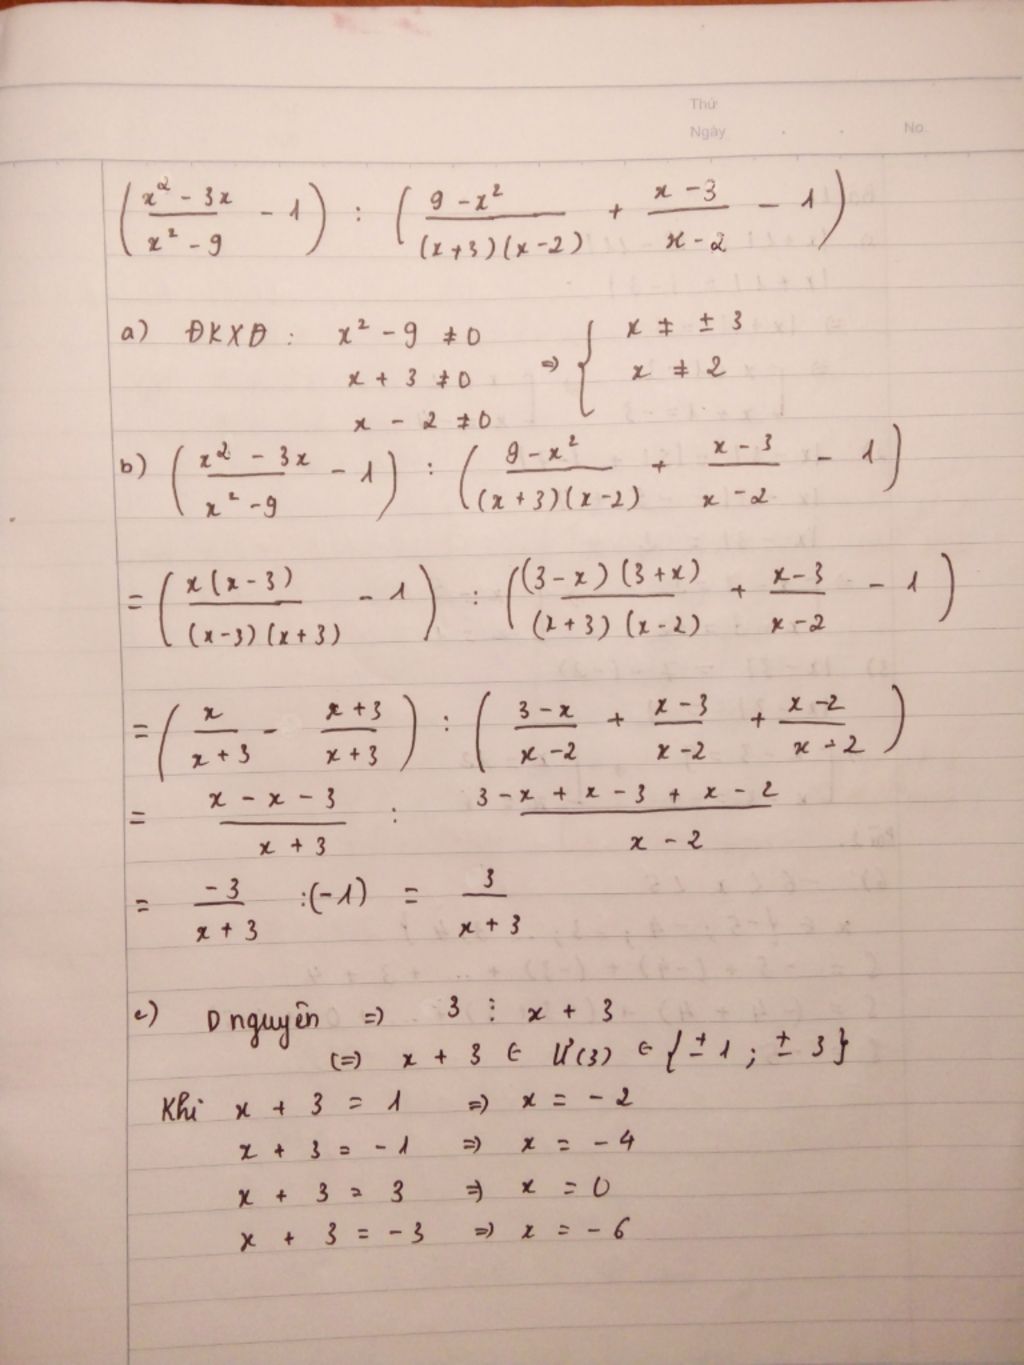 Thứ
Ngày . . No.
(x² - 3x / x² - 9 - 1) : (9 - x² / (x+3)(x-2) + x - 3 / x - 2 - 1)
a) ĐKXĐ : x² - 9 ≠ 0
x + 3 ≠ 0
x - 2 ≠ 0
=> { x ≠ ± 3
x ≠ 2
b) (x² - 3x / x² - 9 - 1) : (9 - x² / (x+3)(x-2) + x - 3 / x - 2 - 1)
= (x(x-3) / (x-3)(x+3) - 1) : ((3-x)(3+x) / (x+3)(x-2) + x-3 / x-2 - 1)
= (x / x+3 - x+3 / x+3) : (3-x / x-2 + x-3 / x-2 + x-2 / x-2)
= x - x - 3 / x + 3 : 3 - x + x - 3 + x - 2 / x - 2
= -3 / x + 3 :(-1) = 3 / x + 3
c) D nguyên => 3 ⋮ x + 3
(=> x + 3 ∈ Ư(3) ∈ {± 1 ; ± 3}
Khi x + 3 = 1 => x = - 2
x + 3 = - 1 => x = - 4
x + 3 = 3 => x = 0
x + 3 = - 3 => x = - 6